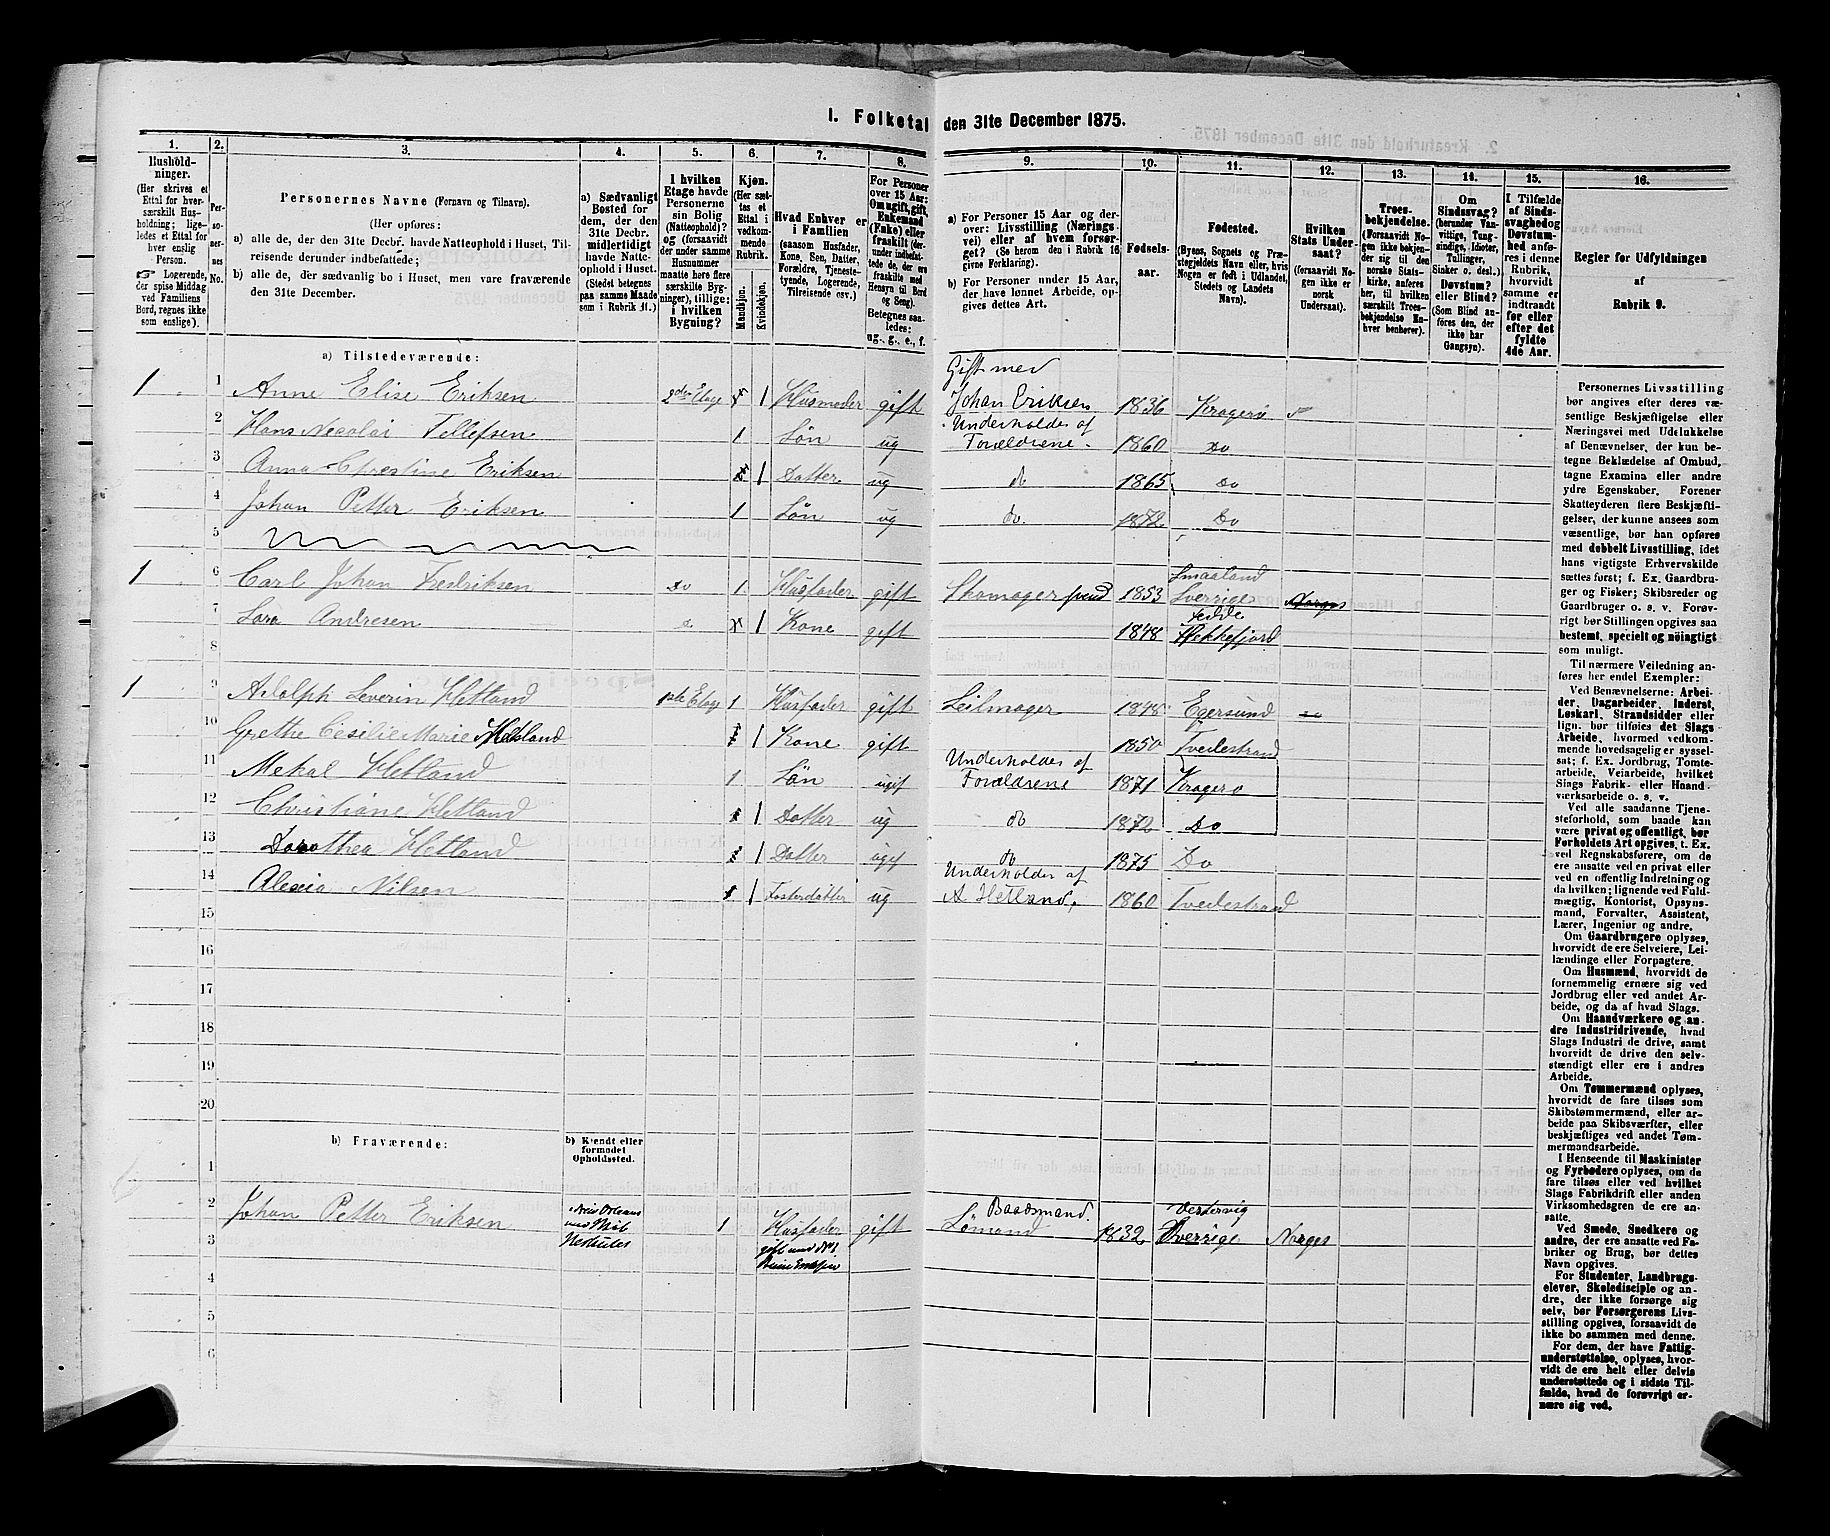 I. Folketal den 31te December 1875.
1. 2. 3. 4. 5. 6. 7. 8. 9. 10. 11. 12. 13. 14. 15. 16.
Husholdninger.
(Her skrives et Ettal for hver særskilt Husholdning; ligeledes et Ettal for hver enslig Person.
☞ Logerende, der spise Middag ved Familiens Bord, regnes ikke som enslige).
Personernes No.
Personernes Navne (Fornavn og Tilnavn).
(Her opføres:
a) alle de, der den 31te Decbr. havde Natteophold i Huset, Tilreisende derunder indbefattede;
b) alle de, der sædvanlig bo i Huset, men vare fraværende den 31te December.
a) Sædvanligt Bosted for dem, der den 31te Decbr. midlertidigt havde Natteophold i Huset. (Stedet betegnes paa samme Maade som i Rubrik 11.)
I hvilken Etage havde Personerne sin Bolig (Natteophold)? og (forsaavidt der under samme Husnummer maatte være flere særskilte Bygninger), tillige: i hvilken Bygning?
Kjøn.
(Her sættes et Ettal i vedkommende Rubrik.
Mandkjøn.
Kvindekjøn.
Hvad Enhver er i Familien
(saasom Husfader, Kone, Søn, Datter, Forældre, Tjenestetyende, Logerende, Tilreisende osv.)
For Personer over 15 Aar: Om ugift, gift, Enkemand (Enke) eller fraskilt (derunder indbefattede de, der ere fraskilte med Hensyn til Bord og Seng). Betegnes saaledes: ug., g., e., f.
a) For Personer 15 Aar og derover: Livsstilling (Næringsvei) eller af hvem forsørget? (Se herom den i Rubrik 16 givne Forklaring).
b) For Personer under 15 Aar, der have lønnet Arbeide, opgives dettes Art.
Fødselsaar.
Fødested.
(Byens, Sognets og Præstegjeldets Navn eller, hvis Nogen er født i Udlandet, Stedets og Landets Navn).
Hvilken Stats Undersaat?
(forsaavidt Nogen ikke er norsk Undersaat).
Troesbekjendelse.
(Forsaavidt Nogen ikke bekjender sig til den norske Statskirke, anføres her, til hvilken særskilt Troesbekjendelse Enhver henhører).
Om Sindssvag?
(herunder Vanvittige, Tungsindige, Idioter, Tullinger, Sinker o. desl.).
Døvstum? eller Blind?
(Som Blind anføres den, der ikke har Gangsyn).
I Tilfælde af Sindssvaghed og Døvstumhed anføres i denne Rubrik, hvorvidt samme er indtraadt før eller efter det fyldte 4de Aar.
Regler for Udfyldningen
af
Rubrik 9.
a) Tilstedeværende:
1 1 Anne Elise Eriksen 2den Etage 1 Husmoder gift Gift med Johan Eriksen 1836 Kragerø
2 Hans Nicolai Tellefsen 1 Søn ug Underholdes af Forældrene. 1860 Do
3 Anna Christine Eriksen 1 Datter ug do 1865 Do
4 Johan Petter Eriksen 1 Søn ug do. 1872 Do
5
1 6 Carl Johan Fredriksen Do 1 Husfader gift Skomagersvend 1853 Smaaland Sverrige Norges
7 Sara Andresen 1 Kone gift 1848 Fedde Hekkefjord
8
1 9 Adolph Severin Hetland 1ste Etage 1 Husfader gift Seilmager 1848 Egersund
10 Grethe Cesilie Marie Hetland 1 Kone gift 1850 Tvedestrand
11 Mekal Hetland 1 Søn ugif Underholdes af Forældrene 1871 Kragerø
12 Christiane Hetland 1 Datter ug do 1872 Do
13 Dorothea Hetland 1 Datter ugif do 1875 Do
14 Alexia Nilsen 1 Fosterdatter ug Underholdes af A Hetland, 1860 Tvedestrand
15
16
17
18
19
20
b) Fraværende:
b) Kjendt eller formodet Opholdssted.
1
2 Johan Petter Eriksen Orleans med Herkules 1 Husfader gift med No 1 gift Baadsmand. Sømand 1832 Vestervig Sverrige Norges
3
4
5
6
Personernes Livsstilling
bør angives efter deres væ-
sentlige Beskjæftigelse eller
Næringsvei med Udelukkelse
af Benævnelser, der kun be-
tegne Beklædelse af Ombud,
tagne Examina eller andre
ydre Egenskaber. Forener
Skatteyderen flere Beskjæfti-
gelser, der kunne ansees som
væsentlige, bør han opføres
med dobbelt Livsstilling, idet
hans vigtigste Erhvervskilde
sættes først; f. Ex. Gaardbru-
ger og Fisker; Skibsreder og
Gaardbruger o. s. v. Forøv-
rigt bør Stillingen opgives saa
bestemt, specielt og nøiagtigt
som muligt.
Til nærmere Veiledning an-
føres her endel Exempler:
Ved Benævnelserne: Arbei-
der, Dagarbeider, Inderst,
Løskarl, Strandsidder eller
lign. bør tilføies det Slags
Arbeide, hvormed vedkom-
mende hovedsagelig er syssel-
sat; f. Ex. Jordbrug, Tomte-
arbeide, Veiarbeide, hvilket
Slags Fabrik- eller Haand-
værksarbeide o. s. v.
Ved alle saadanne Tjene-
steforhold, som baade kan
være privat og offentligt, bør
Forholdets Art opgives, f. Ex.
ved Regnskabsførere, om de
ere ansatte ved en privat eller
ved en offentlig Indretning og
da hvilken; lignende ved Fuld-
mægtig, Kontorist, Opsyns-
mand, Forvalter, Assistent,
Lærer, Ingeniør og andre.
Om Gaardbrugere oplyses,
hvorvidt de ere Selveiere, Lei-
lændinge eller Forpagtere.
Om Husmænd, hvorvidt de
fornemmelig ernære sig ved
Jordbrug eller ved andet Ar-
beide, og da af hvad Slags.
Om Haandværkere og an-
dre Industridrivende, hvad
Slags Industri de drive, samt
hvorvidt de drive den selv-
stændigt eller ere i andres
Arbeide.
Om Tømmermænd oplyses,
hvorvidt de fare tilsøs som
Skibstømmermænd, eller ar-
beide paa Skibsværfter, eller
beskjæftiges ved andet Tøm-
mermandsarbeide.
I Henseende til Maskinister
og Fyrbødere oplyses, om de
fare tilsøs eller ved hvilket
Slags Fabrikdrift eller anden
Virksomhedsgren de ere an-
satte.
Ved Smede, Snedkere og
andre, der ere ansatte ved Fa-
briker og Brug, bør dettes
Navn opgives.
For Studenter, Landbrugs-
elever, Skoledisciple og an-
dre, der ikke forsørge sig
selv, bør Forsørgerens Livs-
stilling opgives, forsaavidt de
ikke bo sammen med denne.
For dem, der have Fattig-
understøttelse, oplyses, hvor-
vidt de ere helt eller delvis
understøttede og i sidste Til-
fælde, hvad de forøvrigt er-
nære sig ved.